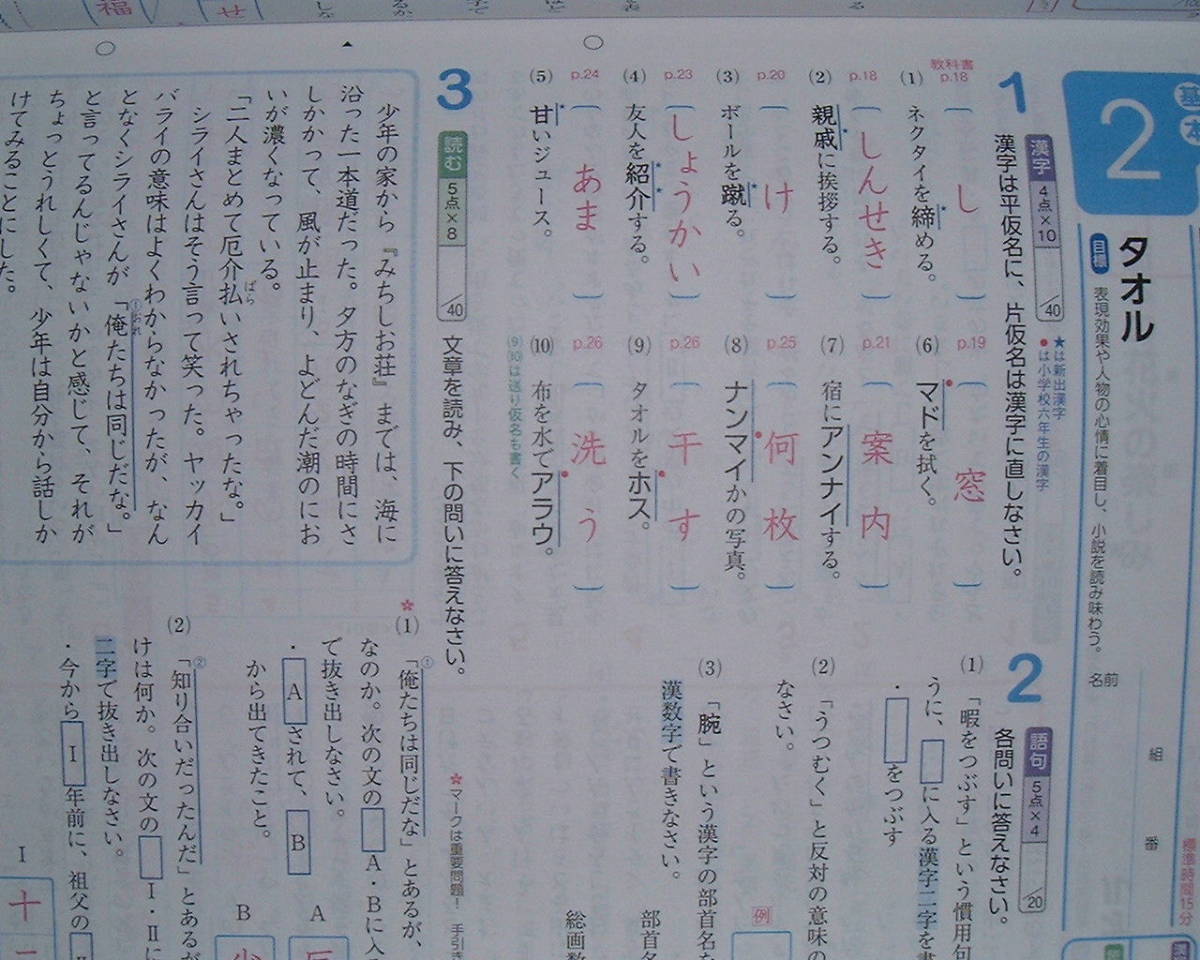 基本
2
タオル
目標 表現効果や人物の心情に着目し、小説を読み味わう。
名前
組
番
標準時間15分
1
漢字 4点×10 /40
漢字は平仮名に、片仮名は漢字に直しなさい。
★は新出漢字
●は小学校六年生の漢字
教科書
p.18
(1) ネクタイを締める。
し
p.18
(2) 親戚に挨拶する。
しんせき
p.20
(3) ボールを蹴る。
け
p.23
(4) 友人を紹介する。
しょうかい
p.24
(5) 甘いジュース。
あま
p.19
(6) マドを拭く。
窓
p.21
(7) 宿にアンナイする。
案内
p.25
(8) ナンマイかの写真。
何枚
p.26
(9) タオルをホス。
干す
p.26
(10) 布を水でアラウ。
洗う
(9)(10)は送り仮名も書く
2
語句 5点×4 /20
各問いに答えなさい。
(1) 「暇をつぶす」という慣用句
うに、□に入る漢字二字を書
・□をつぶす
(2) 「うつむく」と反対の意味の
なさい。
例
(3) 「腕」という漢字の部首名を
漢数字で書きなさい。
部首名
総画数
3
読む 5点×8 /40
文章を読み、下の問いに答えなさい。
★マークは重要問題! 手引き
少年の家から『みちしお荘』までは、海に
沿った一本道だった。夕方のなぎの時間にさ
しかかって、風が止まり、よどんだ潮のにお
いが濃くなっている。
「二人まとめて厄介払いされちゃったな。」
ばら
シライさんはそう言って笑った。ヤッカイ
バライの意味はよくわからなかったが、なん
となくシライさんが「俺たちは同じだな。」
①おれ
と言ってるんじゃないかと感じて、それが
ちょっとうれしくて、少年は自分から話しか
けてみることにした。
(1) 「①俺たちは同じだな」とあるが、
なのか。次の文の□A・Bに入る
て抜き出しなさい。
・Aされて、B
から出てきたこと。
A
B
(2) 「②知り合いだったんだ」とあるが
けは何か。次の文の□Ⅰ・Ⅱに
二字で抜き出しなさい。
・今からⅠ年前に、祖父のⅡ
Ⅰ
十